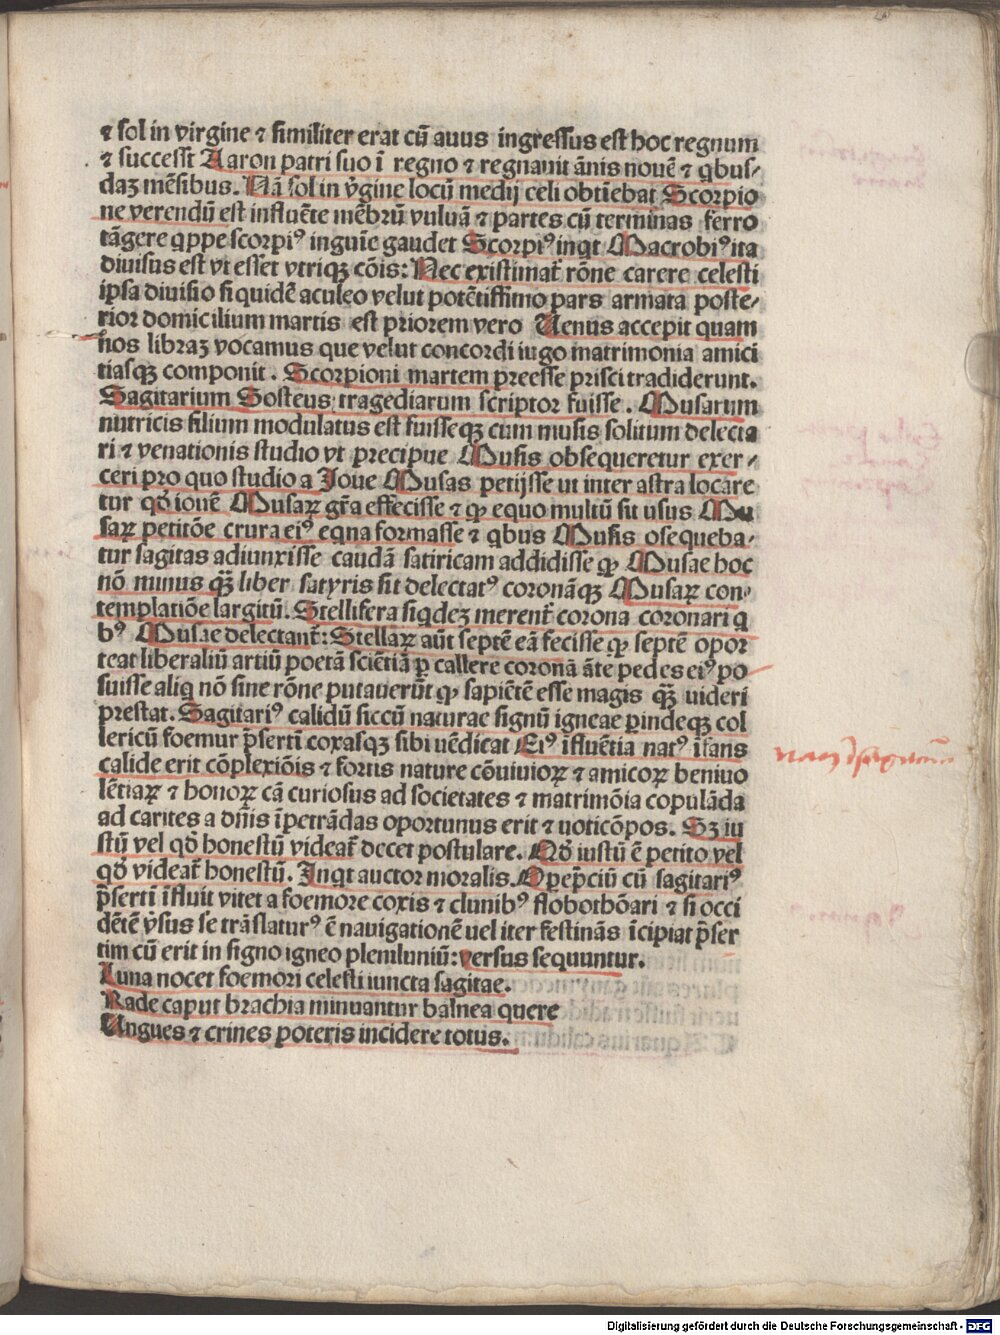 ⁊ sol in virgine ⁊ similiter erat cũ auus ingressus est hoc regnum
⁊ successit Aaron patri suo ĩ regno ⁊ regnauit ãnis nouẽ ⁊ qbus⸗
daꝫ mẽsibus. Nã sol in ỹgine locũ medij celi obtĩebat Scorpio
ne verendũ est influẽte mẽbrũ vuluã ⁊ partes cũ terminas ferro
tãgere qppe scorpiꝰ inguĩe gaudet Scorpiꝰ inqt Macrobiꝰ ita
diuisus est vt esset vtriqꝫ cõis: Nec existimat̃ rõne carere celesti
ipsa diuisio siquidẽ aculeo velut potẽtissimo pars armata poste⸗
rior domicilium martis est priorem vero Uenus accepit quam
nos libraꝫ vocamus que velut concordi iugo matrimonia amici
tiasqꝫ componit. Scorpioni martem preesse prisci tradiderunt.
Sagitarium Sosteus tragediarum scriptor fuisse. Musarum
nutricis filium modulatus est fuisseqꝫ cum musis solitum delecta
ri ⁊ venationis studio vt precipue Musis obsequeretur exer⸗
ceri pro quo studio a Joue Musas petijsse ut inter astra locare
tur qđ iouẽ Musaꝝ gr̃a effecisse ⁊ ꝙ equo multũ sit usus Mu
saꝝ petitõe crura eiꝰ eqna formasse ⁊ qbus Musis osequeba⸗
tur sagitas adiunxisse caudã satiricam addidisse ꝙ Musae hoc
nõ minus qꝫ̃ liber satyris sit delectatꝰ coronãqꝫ Musaꝝ con⸗
templatiõe largitũ. Stellifera siqdeꝫ merent̃ corona coronari q
bꝰ Musae delectant̃: Stellaꝝ aũt septẽ eã fecisse ꝙ septẽ opor
teat liberaliũ artiũ poetã sciẽtiã ꝑ callere coronã ãte pedes eiꝰ po
suisse aliq nõ sine rõne putauerũt ꝙ sapiẽtẽ esse magis qꝫ̃ uideri
prestat. Sagitariꝰ calidũ siccũ naturae signũ igneae ꝑindeqꝫ col
lericũ foemur p̃sertĩ coxasqꝫ sibi uẽdicat Eiꝰ ĩfluẽtia natꝰ ĩfans
calide erit cõplexiõis ⁊ fortis nature cõuiuioꝝ ⁊ amicoꝝ beniuo
lẽtiaꝝ ⁊ honoꝝ cã curiosus ad societates ⁊ matrimõia copulãda
ad carites a dñis ĩpetrãdas oportunus erit ⁊ uoticõpos. Sꝫ iu
stũ vel qđ honestũ videat̃ decet postulare. Qđ iustũ ẽ petito vel
qđ videat̃ honestũ. Inqt auctor moralis. Oꝑep̃ciũ cũ sagitariꝰ
p̃sertĩ ĩfluit vitet a foemore coxis ⁊ clunibꝰ flobothõari ⁊ si occi
dẽtẽ ỹsus se trãslaturꝰ ẽ nauigationẽ uel iter festinãs ĩcipiat p̃ser
tim cũ erit in signo igneo pleniluniũ: versus sequuntur.
Luna nocet foemori celesti iuncta sagitae.
Rade caput brachia minuantur balnea quere
Ungues ⁊ crines poteris incidere totus.
Digitalisierung gefördert durch die Deutsche Forschungsgemeinschaft - DFG